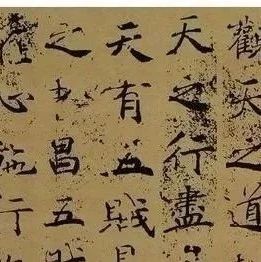 觀天之道
天之行盡
天有五賊見
之者昌五賊
心施行